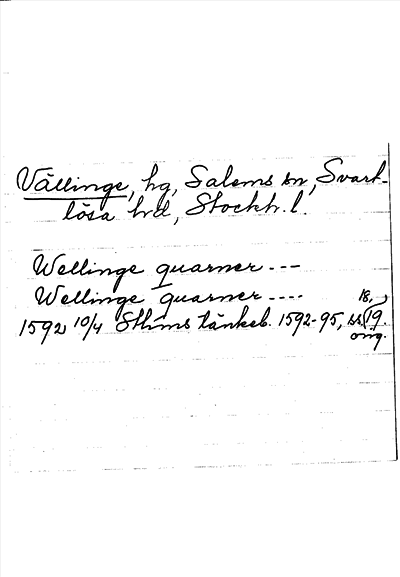 Vällinge, hg, Salems sn, Svart-
lösa hd, Stockh. l.
Wellinge quarner ---
Wellinge quarner ----
1592 10/4 Sthms tänkeb. 1592-95, ss. 18, 19.
orig.